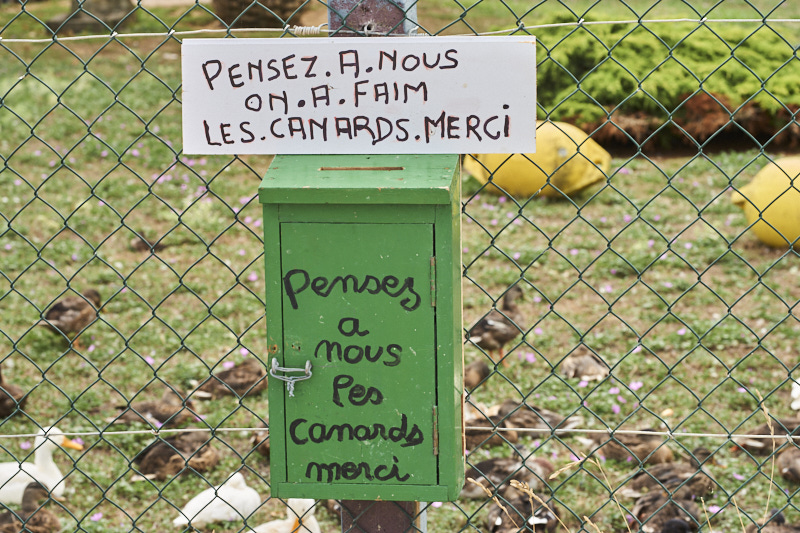 PENSEZ.A.NOUS
ON.A.FAIM
LES.CANARDS.MERCi
Pensez
a
nous
les
canards
merci